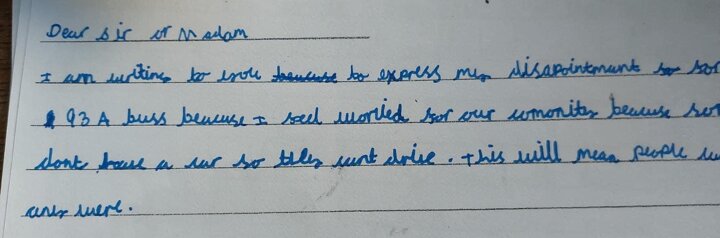 Dear sir or Madam
I am writing to you to express my disapointment for
93 A buss because I feel worried for our comonity because som
dont have a car so they cant drive. This will mean people w
any were.